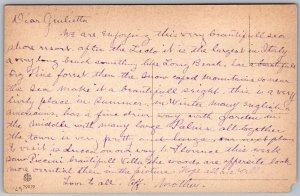 Dear Giulietta
We are enjoying this very beautiful sea
shore resort. after the Lido it is the largest in Italy
a very long beach something like Long Beach, has a beautiful
big Pine forest then the snow caped mountains so near
the sea make it a beautiful sight. this is a very
lively place in Summer. in Winter many English &
Americans. has a fine drive way with garden in
the middle with many large Palms. all together
the town is very pretty &
I visit on our way to Florence this week
saw Puccini beautiful Villa. the woods are opposite look
more beautiful then in the picture. Hope all is
Love to all. Aff. Mother.